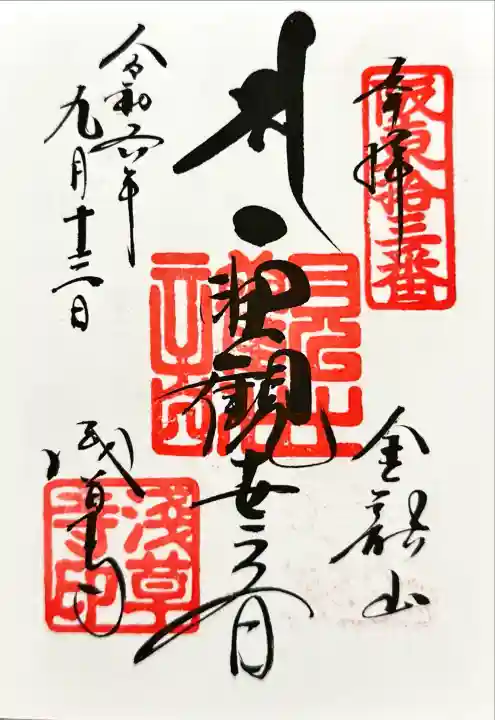 坂東拾三番
奉拝
金龍山
聖観世音
令和六年
九月十三日
浅草寺
淺草寺印